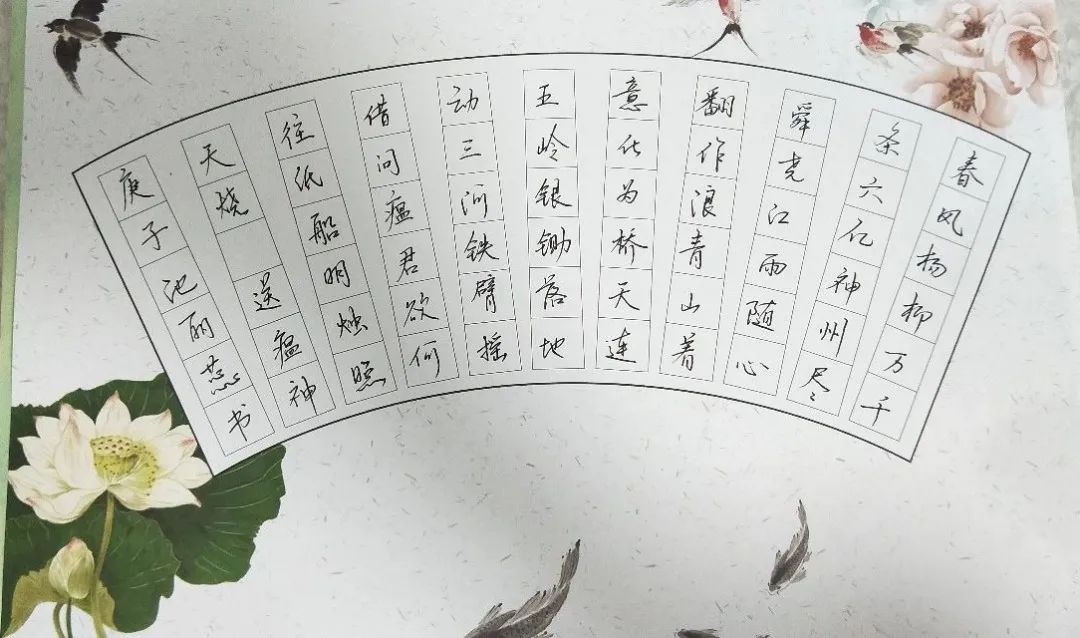 春风杨柳万千
条六亿神州尽
舜尧江雨随心
翻作浪青山着
意化为桥天连
五岭银锄落地
动三河铁臂摇
借问瘟君欲何
往纸船明烛照
天烧 送瘟神
庚子池丽蕊书